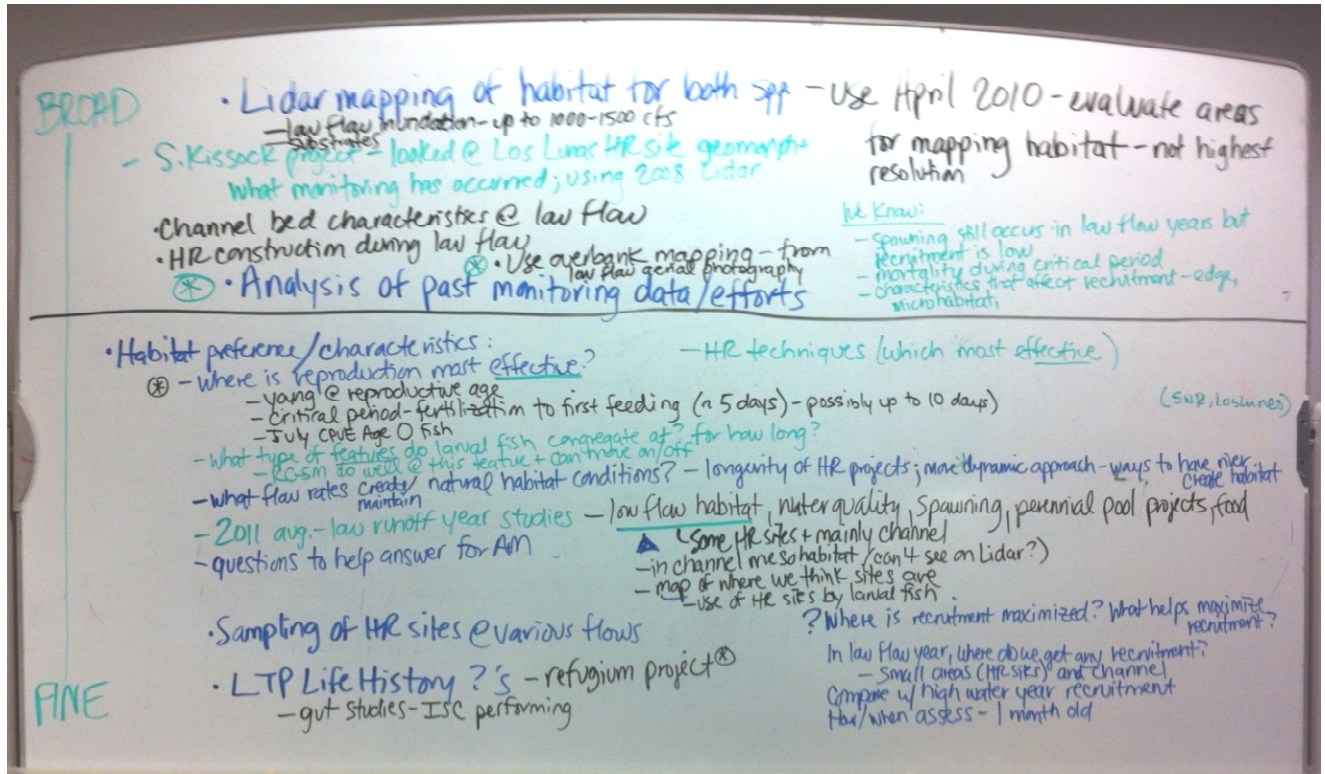 BROAD
• Lidar mapping of habitat for both spp – use April 2010 – evaluate areas
for mapping habitat – not highest
resolution
– low flow inundation – up to 1000-1500 cfs
– substrates
– S. Kissock project – looked @ Los Lunas HR site geomorph
what monitoring has occurred; using 2008 Lidar
• Channel bed characteristics @ low flow
• HR construction during low flow
* • Use overbank mapping – from
low flow aerial photography
* • Analysis of past monitoring data/efforts
We Know:
– spawning still occurs in low flow years but
recruitment is low
– mortality during critical period
– characteristics that affect recruitment – edge,
microhabitat,
• Habitat preference/characteristics:
* – where is reproduction most effective?
– young @ reproductive age
– critical period – fertilization to first feeding (~ 5 days) – possibly up to 10 days)
– July CPUE Age 0 fish
– HR techniques (which most effective)
(SNR, Los Lunas)
– what type of features do larval fish congregate at? for how long?
– RGSM do well @ this feature + can move on/off
– what flow rates create/
maintain
natural habitat conditions? – longevity of HR projects; more dynamic approach – ways to have river
create habitat
– 2011 avg. – low runoff year studies – low flow habitat, water quality, spawning, perennial pool projects, food
some HR sites + mainly channel
– in channel mesohabitat (can't see on Lidar?)
– map of where we think sites are
– use of HR sites by larval fish
– questions to help answer for AM
• Sampling of HR sites @ various flows
• LTP Life History ?'s – refugium project *
– gut studies – ISC performing
? Where is recruitment maximized? What helps maximize
recruitment?
In low flow year, where do we get any recruitment?
– Small areas (HR sites) and channel
Compare w/ high water year recruitment
How/when assess – 1 month old
FINE